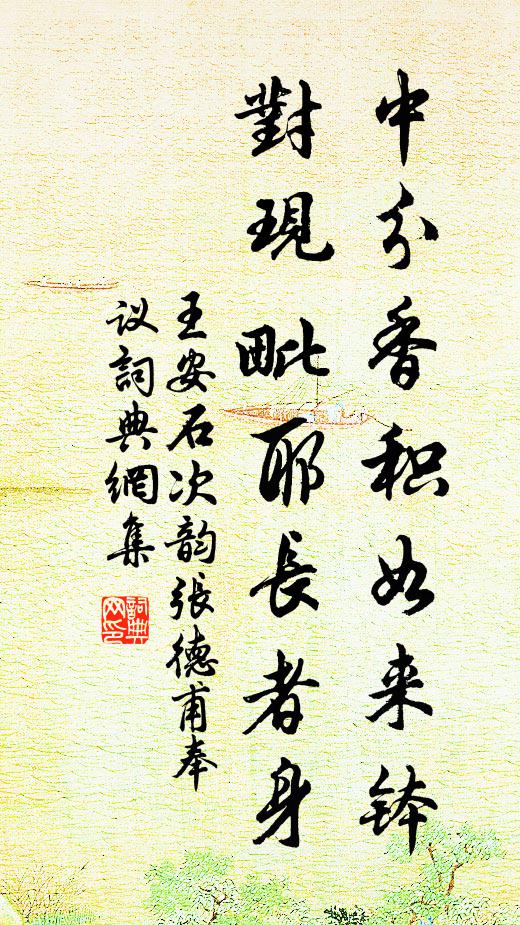 中分香积如来钵
對現毗耶長者身
王安石次韵張德甫奉
议詞典網集
詞典网印